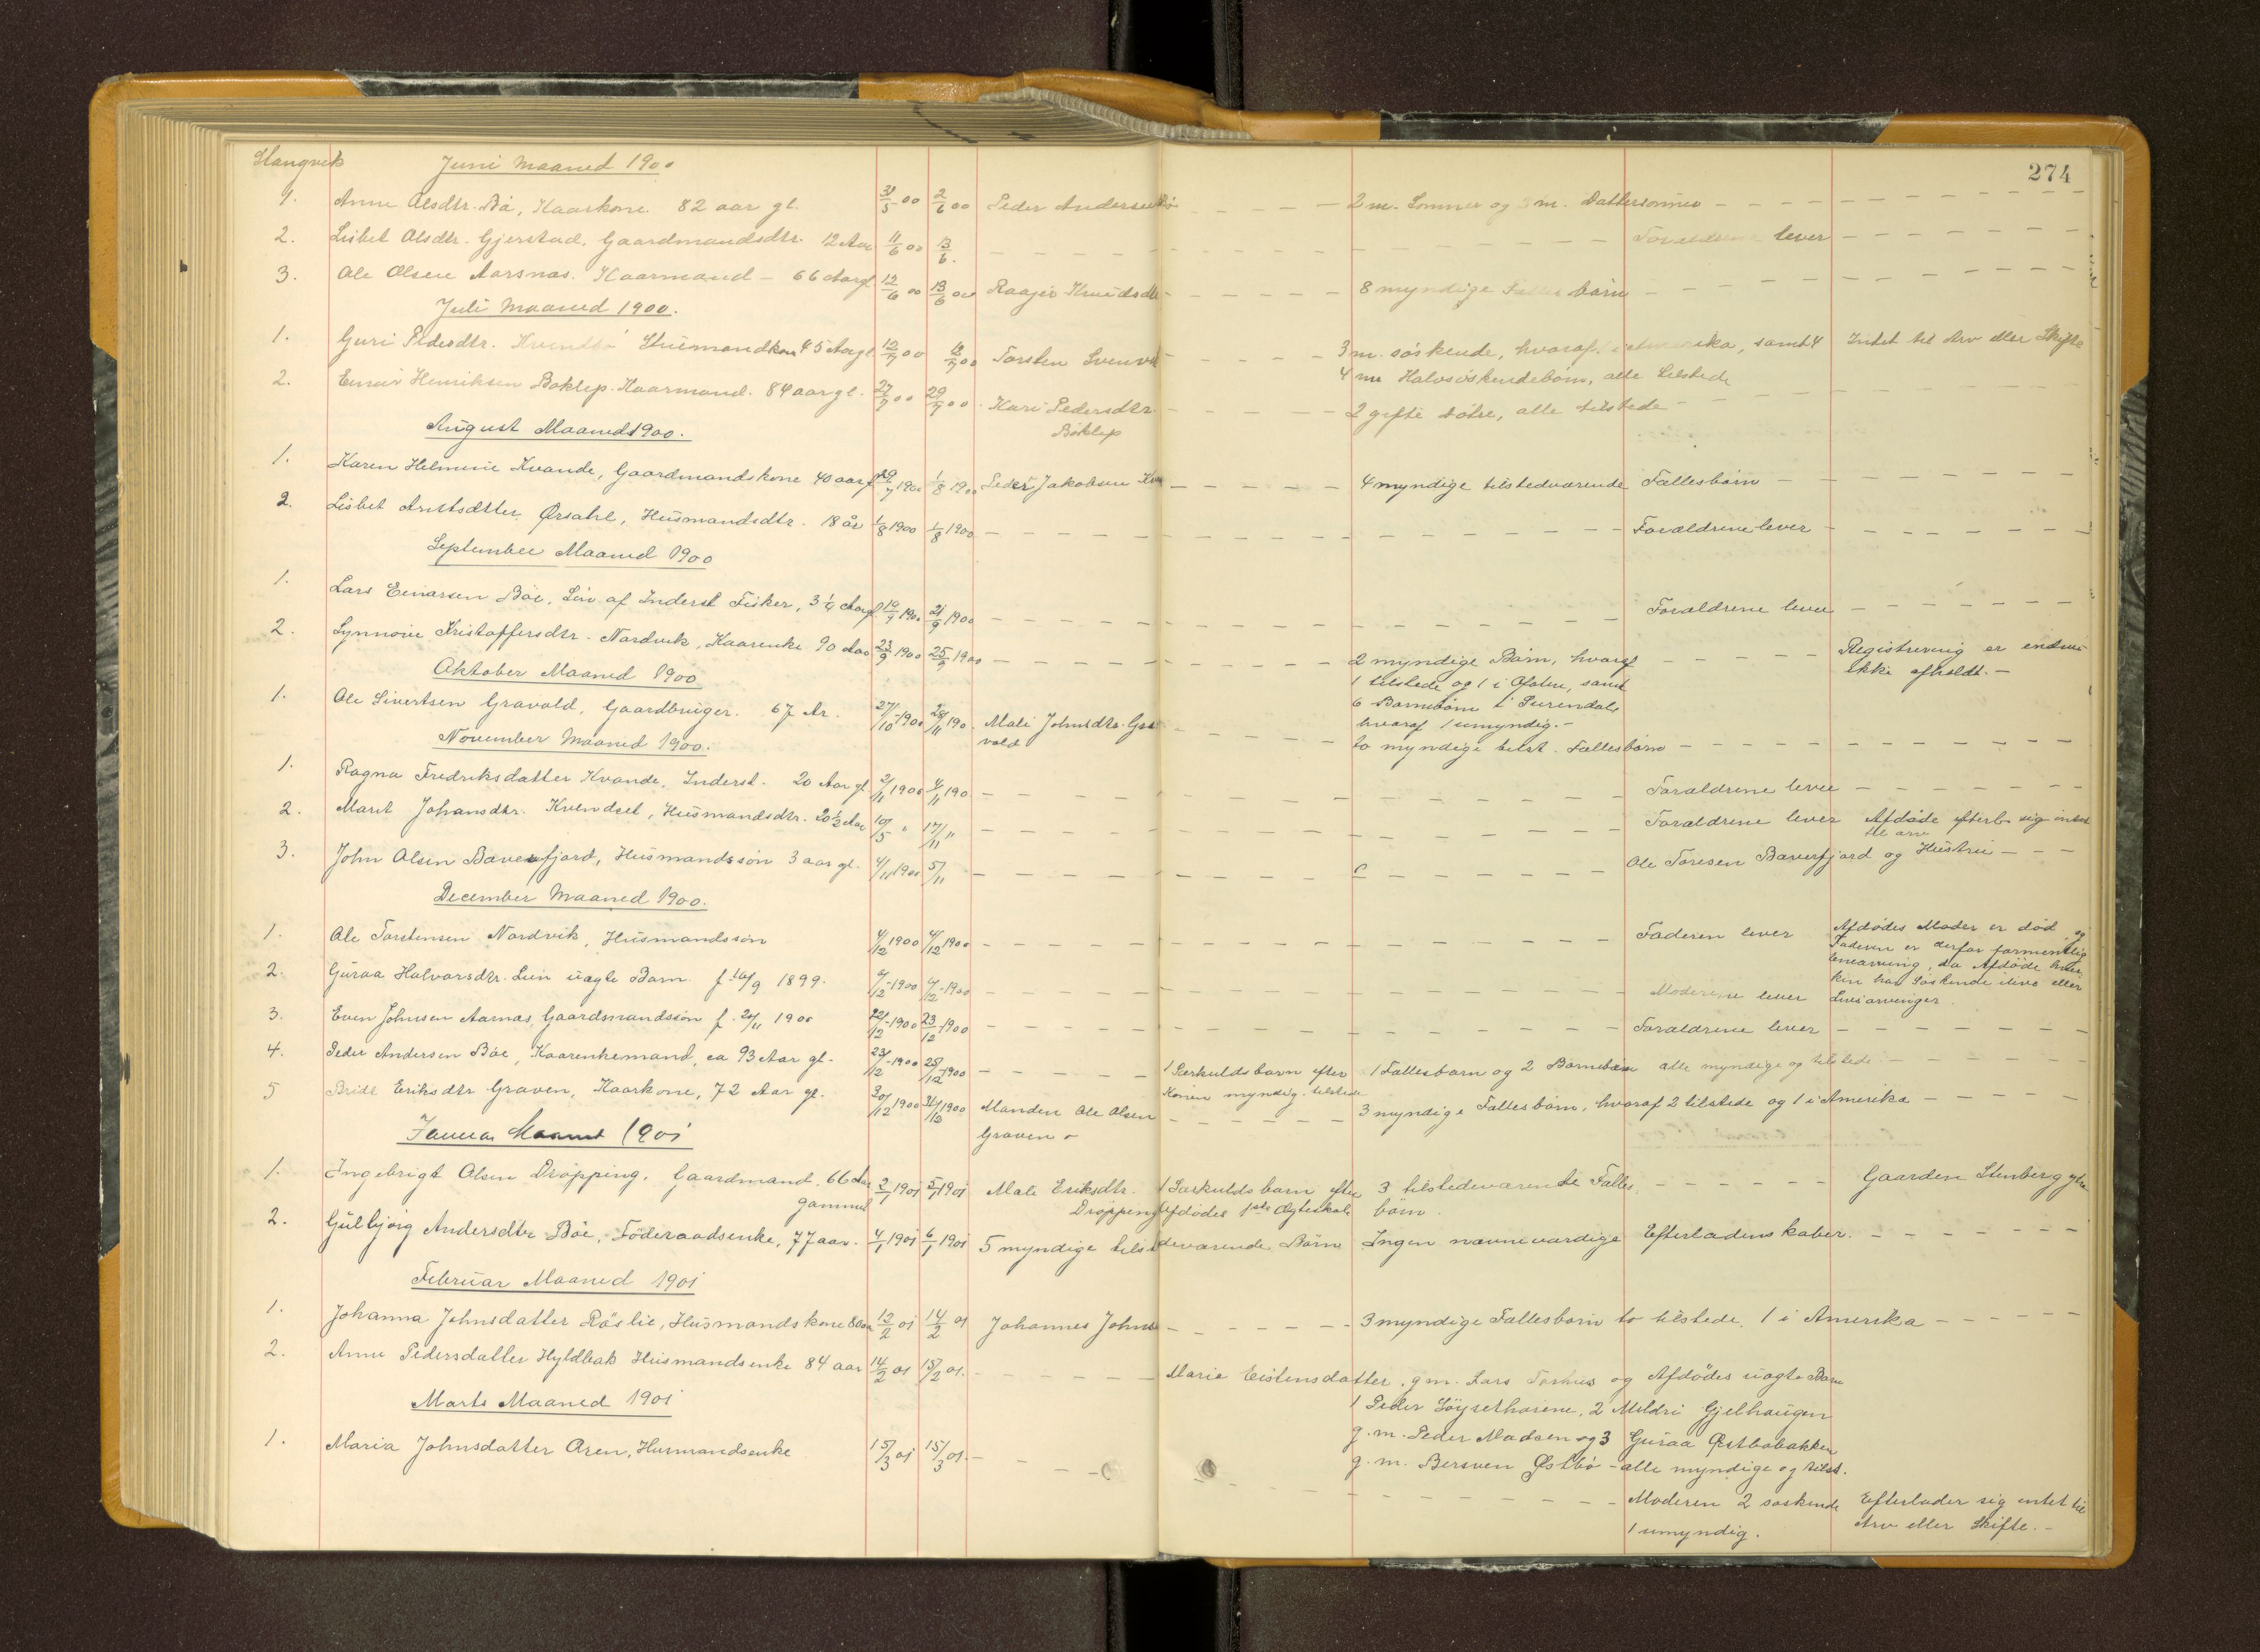 274
Stangvik Juni Maaned 1900
1. Anne Olsdtr. Bø, Kaarkone. 82 aar gl. 31/5 00 2/6 00 Peder Andersen Bø – – – – 2 m. Sønner og 3 m. Dattersønner – – – –
2. Lisbet Olsdtr. Gjerstad, Gaardmandsdtr. 12 Aar 11/6 00 13/6. – – – – Forældrene lever – – – –
3. Ole Olsen Aarsnæs. Kaarmand – 66 Aar gl 12/6 00 13/6 00 Knudsdtr – – – – 8 myndige Fælles børn – – – –
Juli Maaned 1900.
1. Guri Pedersdtr. Kvendbø Husmandkone 45 Aar gl. 12/7 00 /7 00 Torsten – – – – 3 m. søskende, hvoraf 1 i Amerika, samt 4 Intet til Arv eller Skifte
4 m Halvsøskendebørn, alle tilstede
2. Einar Henriksen Bøklep. Kaarmand. 84 aar gl. 27/7 00 29/7 00. Kari Pedersdtr. – – – – 2 gifte døtre, alle tilstede – – – –
Bøklep
August Maaned 1900.
1. Karen Helmine Kvande, Gaardmandskone 40 aar gl 29/7 1900 1/8 1900 Peder Jakobsen Kva – – – – 4 myndige tilstedværende Fællesbørn – – – –
2. Lisbet Antsdtter Ørsahl, Husmandsdtr. 18 år 1/8 1900 1/8 1900 – – – – Forældrene lever – – – –
September Maaned 1900
1. Lars Einarsen Bøe, Søn af Inderst Fisker, 3 1/4 Aar gl 19/9 1900 21/9 1900 – – – – Forældrene lever – – – –
2. Synnøve Kristoffersdtr. Nordvik, Kaarenke 90 Aar 23/9 1900 25/9 1900 – – – – 2 myndige Børn, hvoraf – – – – Registrering er endnu
1 tilstede og 1 i Ofoten, samt ikke afholdt. –
6 Børnebørn i Surendal
hvoraf 1 umyndig. –
Oktober Maaned 1900
1. Ole Sivertsen Gravold, Gaardbruger. 67 Ar. 27/10 1900 28/11 190. Mali Johnsdtr. Gra – – – – to myndige tilst. Fællesbørn – – – –
vold
November Maaned 1900.
1. Ragna Fredriksdatter Kvande, Inderst. 20 Aar gl. 2/11 1900 4/11 190 – – – – Forældrene lever – – – –
2. Marit Johansdtr. Kvendset, Husmandsdtr. 20 1/2 Aar 10/5 " 17/11 – – – – Forældrene lever Afdøde efterl. sig intet
til arv
3. John Olsen Bæverfjord, Husmandssøn 3 aar gl. 4/11 1900 5/11 – – – – Ole Toresen Bæverfjord og Hustru – – –
December Maaned 1900.
1. Ole Torstensen Nordvik, Husmandssøn 4/12 1900 4/12 1900 – – – – Faderen lever Afdødes Moder er død, og
Faderen er derfor formentlig
enearving, da Afdøde hver
ken har Søskende ilive eller
Livsarvinger.
2. Guraa Halvorsdtr. Lun uægte Barn f. 16/9 1899. 6/12 1900 6/12 1900 – – – – Moderen lever
3. Even Johnsen Aarnæs, Gaardsmandssøn f. 20/11 1900 22/12 1900 23/12 1900 – – – – Forældrene lever – – – –
4. Peder Andersen Bøe, Kaarenkemand, ca 93 Aar gl. 23/12 1900 25/12 1900 – – – – 1 Særkuldsbarn efter 1 Fællesbarn og 2 Børnebørn alle myndige og tilstede – – – –
Konen myndig tilstede
5 Brit Eriksdtr Graven, Kaarkone, 72 Aar gl. 30/12 1900 31/12 1900 Manden Ole Olsen – – – – 3 myndige Fællesbørn, hvoraf 2 tilstede og 1 i Amerika – – – –
Graven –
Januar Maaned 1901
1. Ingebrigt Olsen Drøpping, Gaardmand, 66 Aar 2/1 1901 5/1 1901 Male Eriksdtr. 1 Særkuldsbarn efter 3 tilstedeværende Fælles – – – – Gaarden Stenberg
gammel Drøpping Afdødes 1ste Ægteskab børn.
2. Gulbjørg Andersdtr Bøe, Føderaadsenke, 77 aar. 4/1 1901 6/1 1901 5 myndige tilstedeværende Børn Ingen nævneværdige Efterladenskaber. – – – –
Februar Maaned 1901
1. Johanna Johnsdatter Røslie, Husmandskone 80 aar 12/2 01 14/2 01 Johannes Johns – – – – 3 myndige Fællesbørn to tilstede. 1 i Amerika – – – –
2. Anne Pedersdatter Hyldbak Husmandsenke 84 aar 14/2 01 15/2 01. – – – – Marie Eistensdatter. g m. Lars Torhus og Afdødes uægte Barn
1 Peder Løysethaiene, 2 Mildri Gjelhaugen
g. m. Peder Madsen og 3 Guraa Østbøbakken
g. m. Bersven Østbø – alle myndige og tilst.
Marts Maaned 1901
1. Maria Johnsdatter Aren, Husmandsenke 15/3 01 15/3 01. – – – – Moderen 2 søskende Efterlader sig intet til
1 umyndig. Arv eller Skifte. –